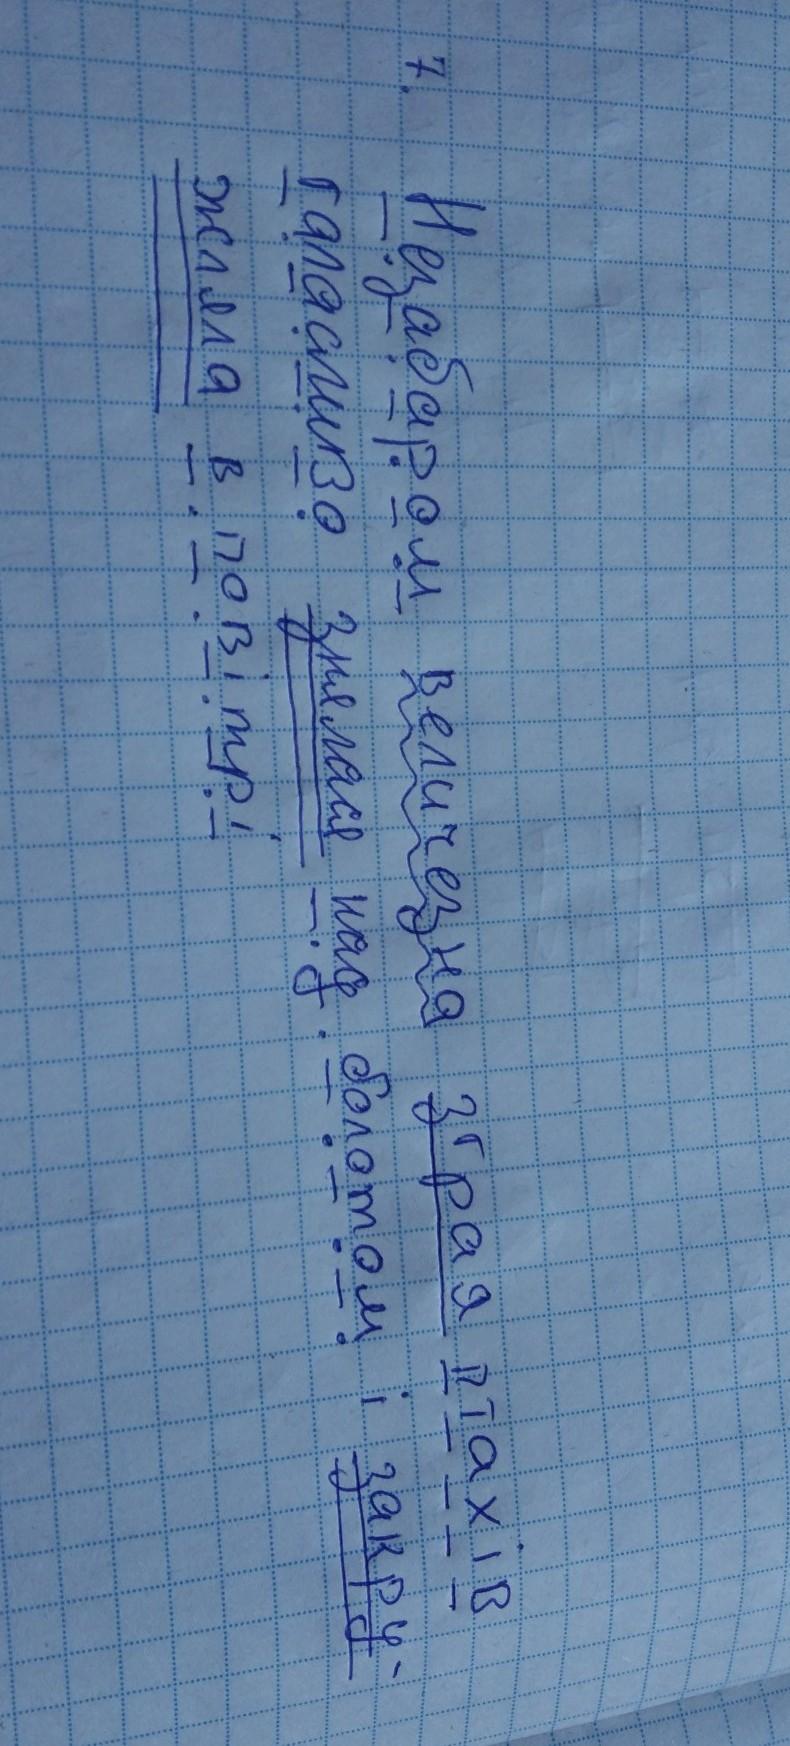 7. Незабаром величезна зграя птахів
галасливо знялася над болотом і закру-
жляла в повітрі